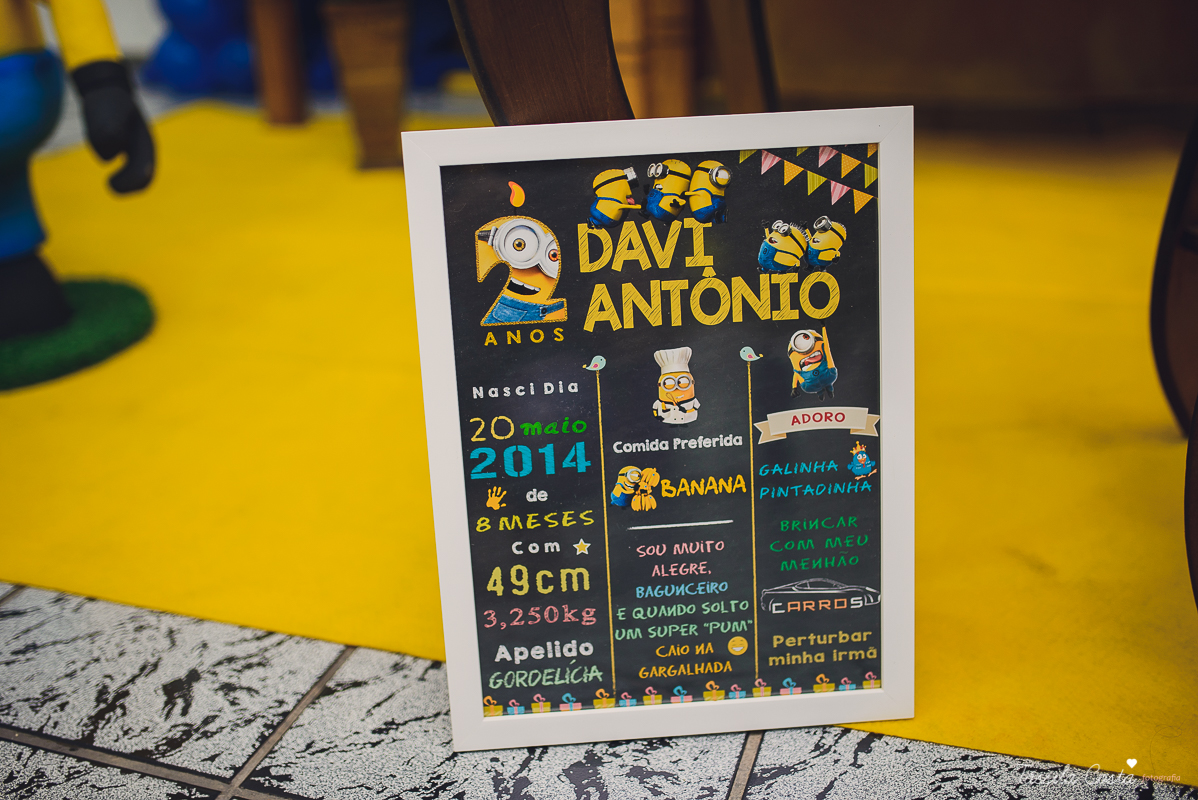 2
ANOS
DAVI
ANTÔNIO
Nasci Dia
20 maio
2014
de
8 MESES
Com
49cm
3,250kg
Apelido
GORDELÍCIA
Comida Preferida
BANANA
SOU MUITO
ALEGRE,
BAGUNCEIRO
E QUANDO SOLTO
UM SUPER "PUM"
CAIO NA
GARGALHADA
ADORO
GALINHA
PINTADINHA
BRINCAR
COM MEU
MENHÃO
CARROS
Perturbar
minha irmã
Costa fotografia